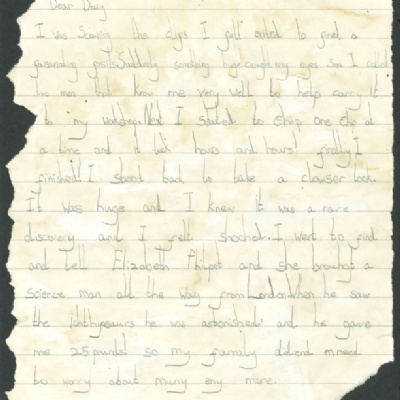 Dear Diary
I was Searing the clifs I felt exited to find a
fasanating fossil. Suddenly something huge caught my eyes Soo I called
the men that know me very well to help carry it
to my Workshop. Next I Started to chip one chip at
a time and it took hours and hours! finally I
finished! I Stood back to take a clawser look.
It was huge and I knew It was a rare
discovery and I felt shocked. I went to find
and tell Elizabeth Philpot and she brought a
Science man all the way from London. When he saw
the Ichthyosaurs he was astonished! and he gave
me 25 pounds! So my family didend need
to worry about muny eny more.